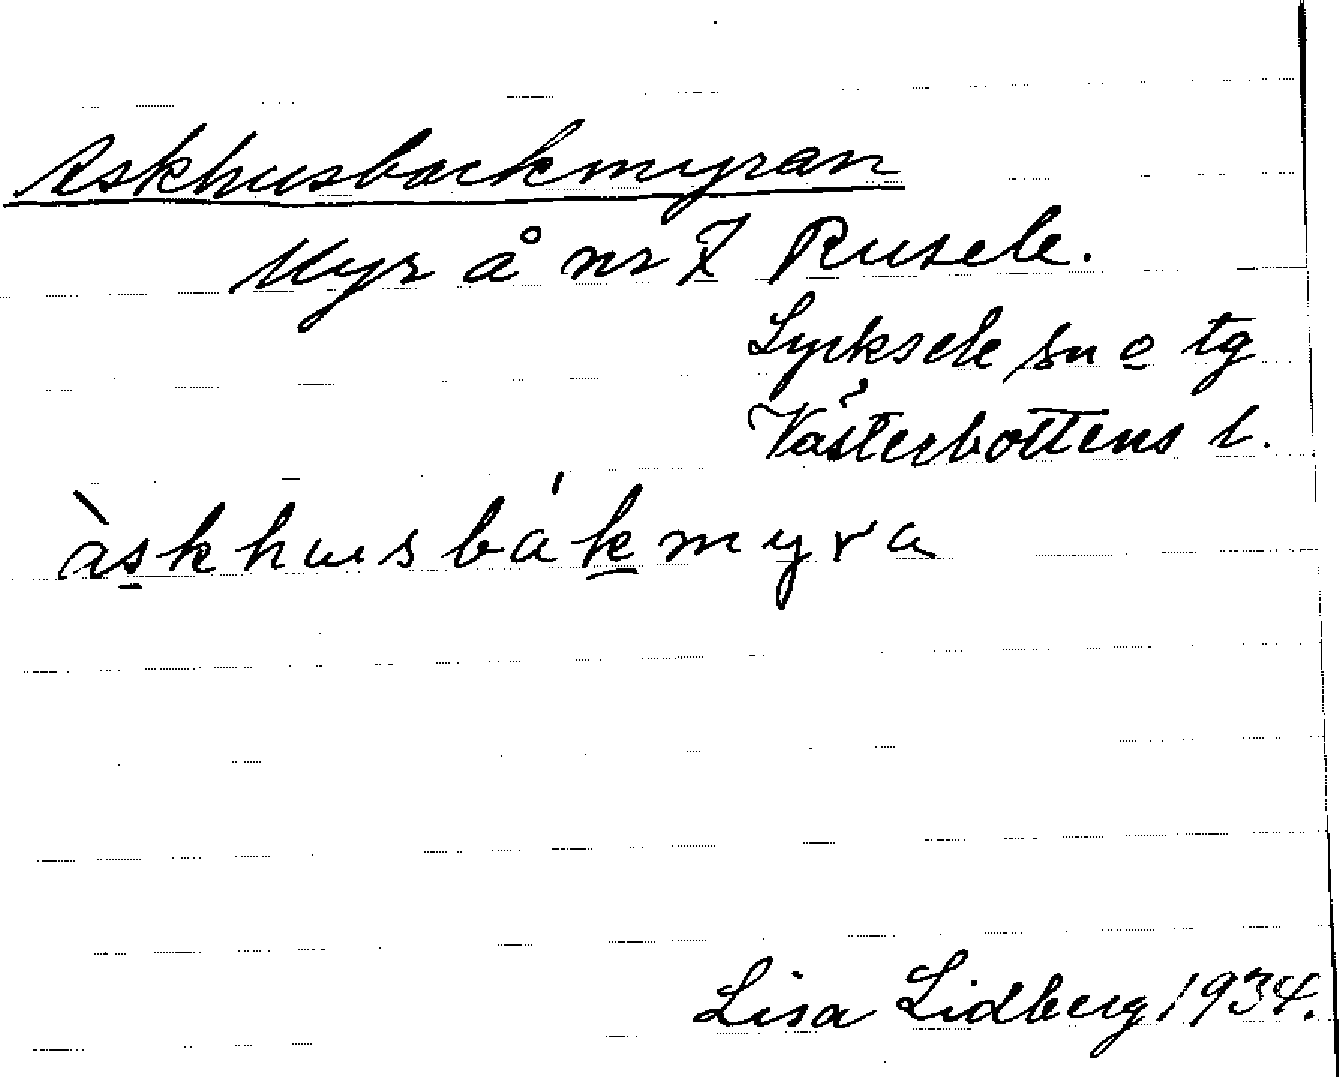 Askhusbackmyran
Myr å nr 7 Rusele.
Lycksele sn o tg
Västerbottens l.
àskhusbákmyra
Lisa Lidberg 1934.